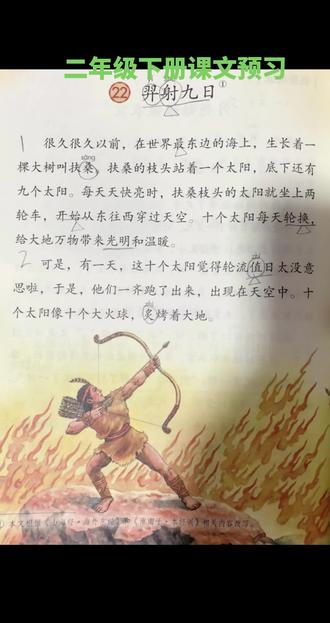 二年级下册课文预习
22 羿射九日①
1 很久很久以前，在世界最东边的海上，生长着一
sāng
棵大树叫扶桑。扶桑的枝头站着一个太阳，底下还有
九个太阳。每天天快亮时，扶桑枝头的太阳就坐上两
轮车，开始从东往西穿过天空。十个太阳每天轮换，
给大地万物带来光明和温暖。
2 可是，有一天，这十个太阳觉得轮流值日太没意
思啦，于是，他们一齐跑了出来，出现在天空中。十
个太阳像十个大火球，炙烤着大地。
本文根据《山海经·海外东经》和《淮南子·本经训》相关内容改写。